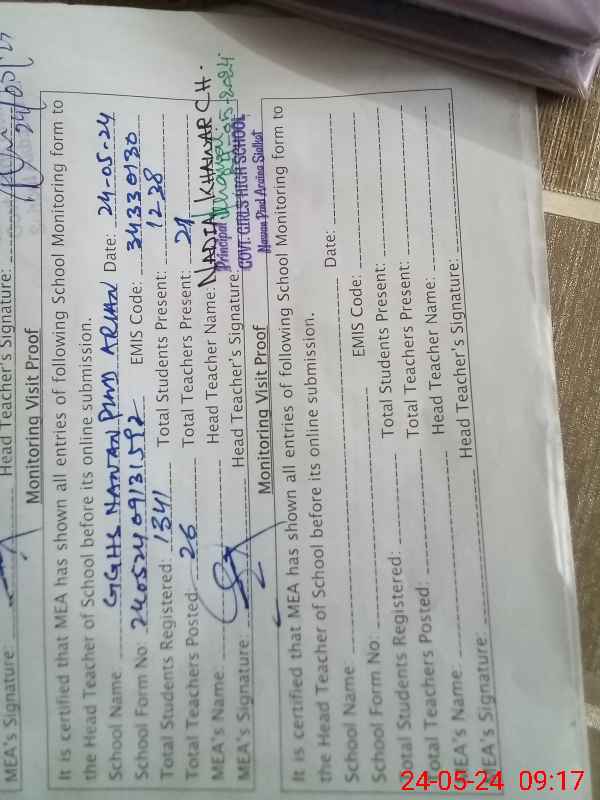 Head Teacher's Signature:
24/05/
MEA's Signature:
Monitoring Visit Proof
It is certified that MEA has shown all entries of following School Monitoring form to
the Head Teacher of School before its online submission.
School Name GGHS NAWAN PIND ARIAN Date: 24-05-24
School Form No: 24052409131592 EMIS Code: 34330130
Total Students Registered: 1341 Total Students Present: 1238
Total Teachers Posted: 26 Total Teachers Present: 21
MEA's Name: Head Teacher Name: NADIA KHAWAR CH.
MEA's Signature: Head Teacher's Signature:
-05-2024
Principal
GOVT. GIRLS HIGH SCHOOL
Nawan Pind Araian Sialkot
Monitoring Visit Proof
It is certified that MEA has shown all entries of following School Monitoring form to
the Head Teacher of School before its online submission.
School Name Date:
School Form No: EMIS Code:
Total Students Registered: Total Students Present:
Total Teachers Posted: Total Teachers Present:
MEA's Name: Head Teacher Name:
MEA's Signature: Head Teacher's Signature:
24-05-24 09:17